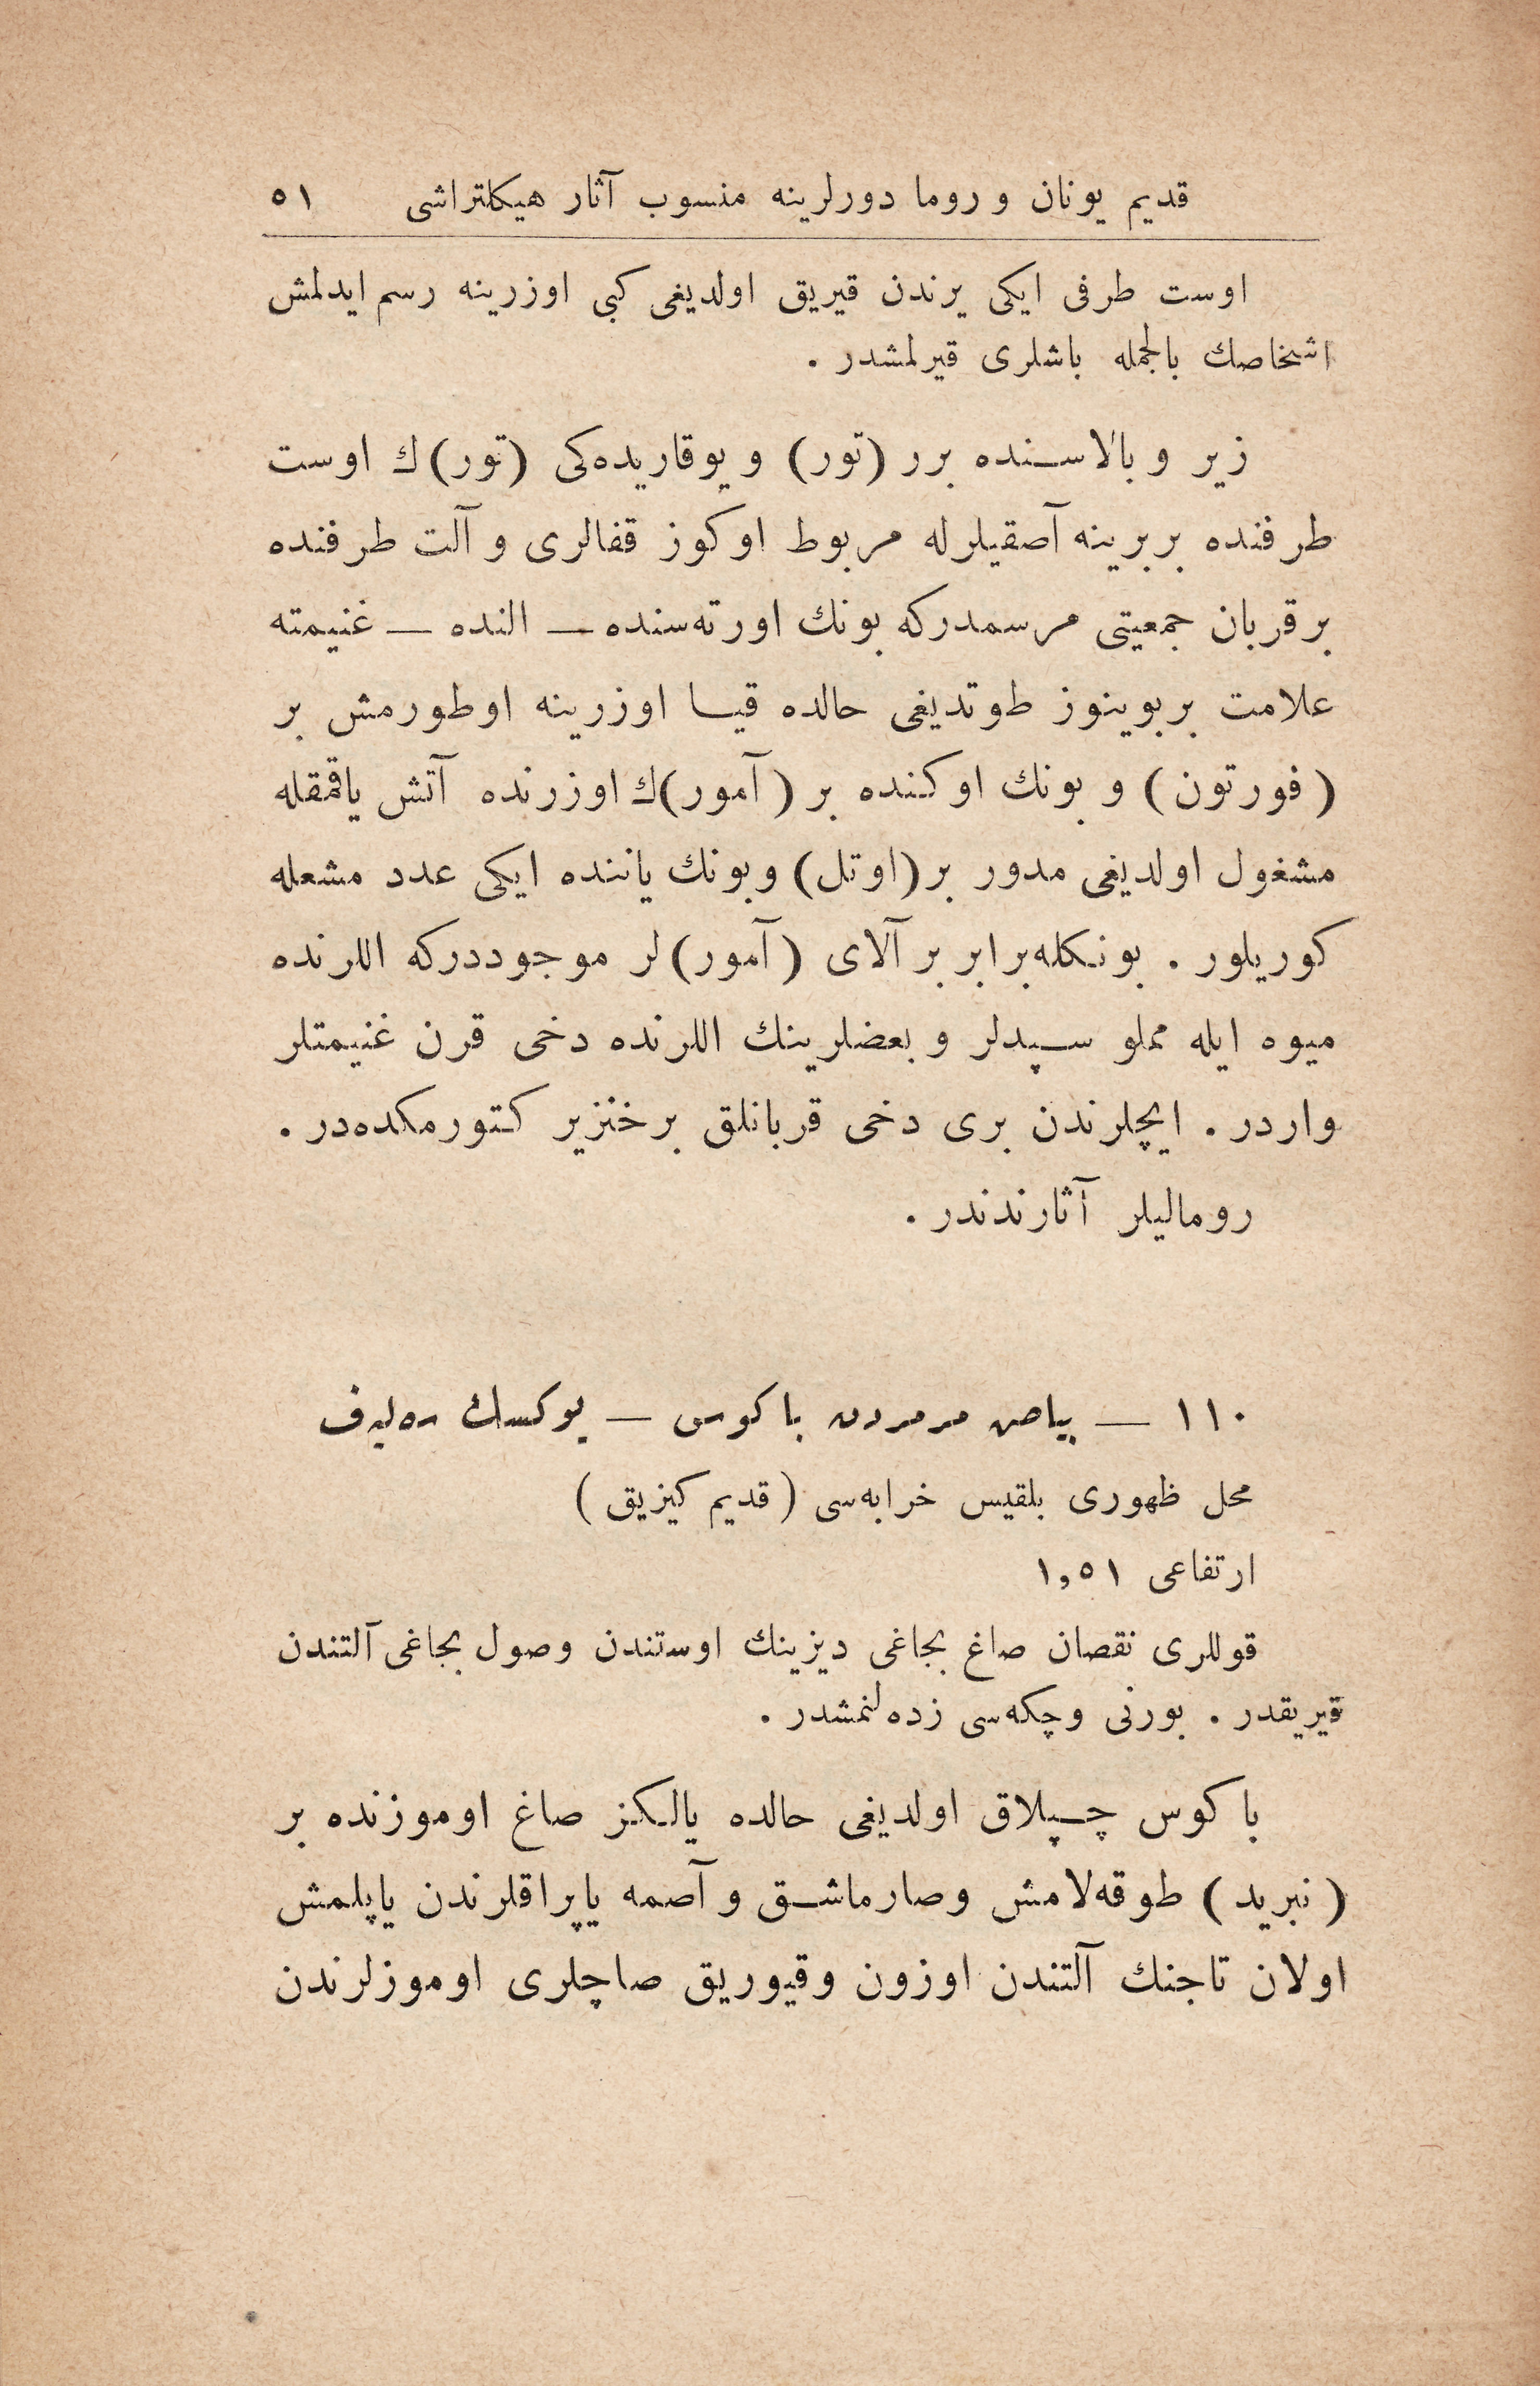 قديم يونان و روما دورلرينه منسوب آثار هيكلتراشى ٥١
اوست طرفى ايكى يرندن قيريق اولديغى كبى اوزرينه رسم ايدلمش
اشخاصك بالجمله باشلرى قيرلمشدر .
زير و بالاسنده برر (تور) و يوقاريده‌كى (تور)ك اوست
طرفنده بربرينه آصقيلرله مربوط اوكوز قفالرى و آلت طرفنده
برقربان جمعيتى مرسمدركه بونك اورته‌سنده — النده — غنيمته
علامت بربوينوز طوتديغى حالده قيا اوزرينه اوطورمش بر
(فورتون) و بونك اوكنده بر (آمور)ك اوزرنده آتش ياقمقله
مشغول اولديغى مدور بر(اوتل) وبونك ياننده ايكى عدد مشعله
كوريلور . بونكله‌برابر بر آلاى (آمور)لر موجوددركه اللرنده
ميوه ايله مملو سپدلر و بعضلرينك اللرنده دخى قرن غنيمتلر
واردر . ايچلرندن برى دخى قربانلق برخنزير كتورمكده‌در .
روماليلر آثارندندر .
١١٠ — بياض مرمردن باكوس — يوكسك ره‌ليه‌ف
محل ظهورى بلقيس خرابه‌سى (قديم كيزيق)
ارتفاعى ١,٥١
قوللرى نقصان صاغ بجاغى ديزينك اوستندن وصول بجاغى آلتندن
قيريقدر . بورنى وچكه‌سى زده‌لنمشدر .
باكوس چپلاق اولديغى حالده يالكز صاغ اوموزنده بر
(نبريد) طوقه‌لامش وصارماشق و آصمه ياپراقلرندن ياپلمش
اولان تاجنك آلتندن اوزون وقيوريق صاچلرى اوموزلرندن